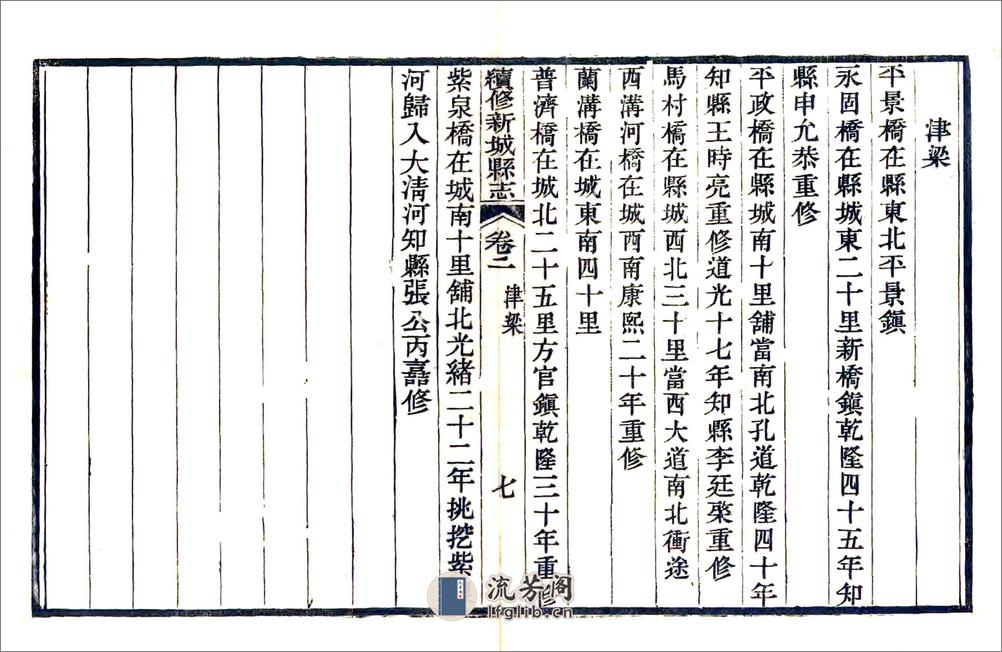 津梁
平景橋在縣東北平景鎮
永固橋在縣城東二十里新橋鎮乾隆四十五年知
縣申允恭重修
平政橋在縣城南十里舖當南北孔道乾隆四十年
知縣王時亮重修道光十七年知縣李廷棨重修
馬村橋在縣城西北三十里當西大道南北衝途
西溝河橋在城西南康熙二十年重修
蘭溝橋在城東南四十里
普濟橋在城北二十五里方官鎮乾隆三十年重修
續修新城縣志 卷二 津梁 七
紫泉橋在城南十里舖北光緒二十二年挑挖紫
河歸入大清河知縣張公丙嚞修
流芳阁
lfglib.cn